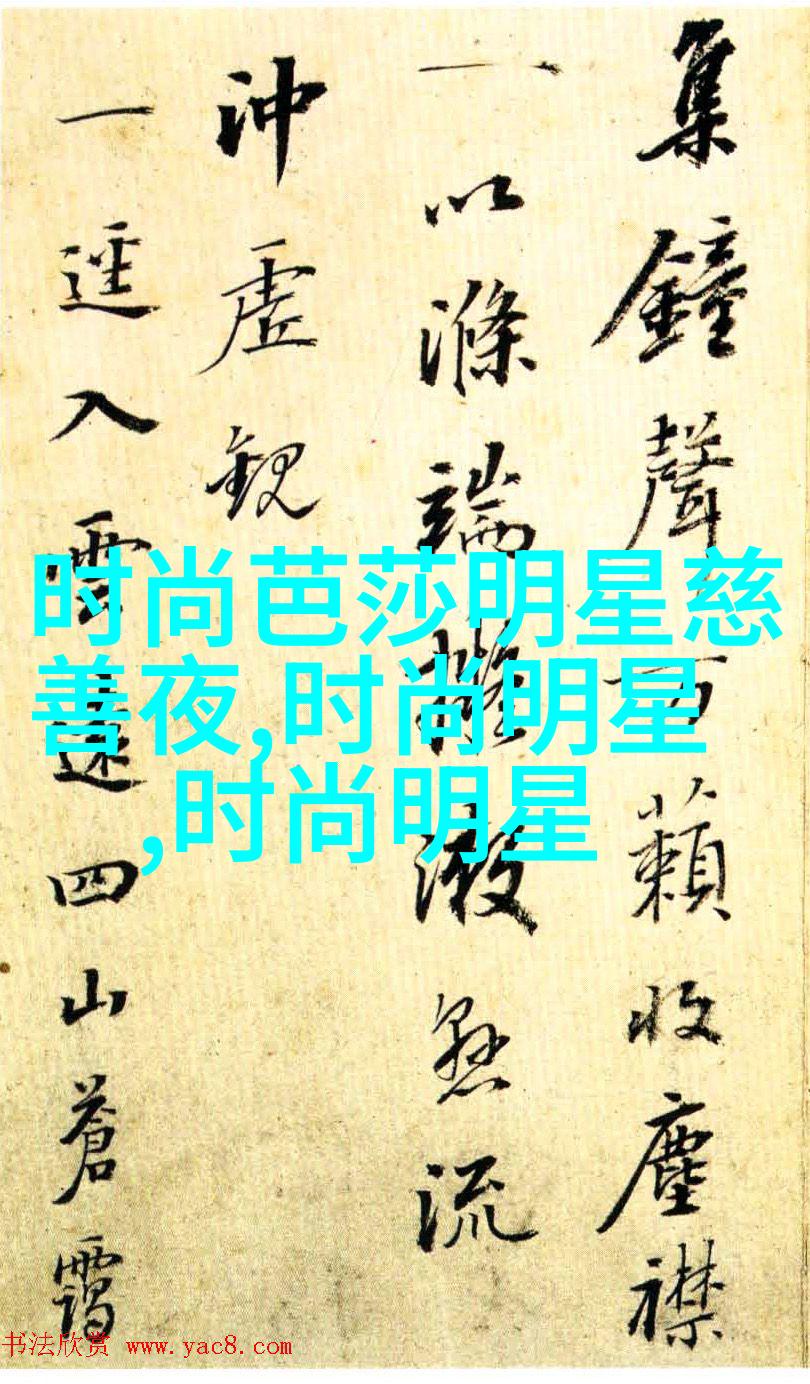 集鐘聲万籟收塵襟
一以滌端漱懸流
沖虛觀
一逕入雲遠四山蒼靄
时尚芭莎明星慈
善夜,时尚明星
,时尚明星
书法欣赏 www.yac8.com